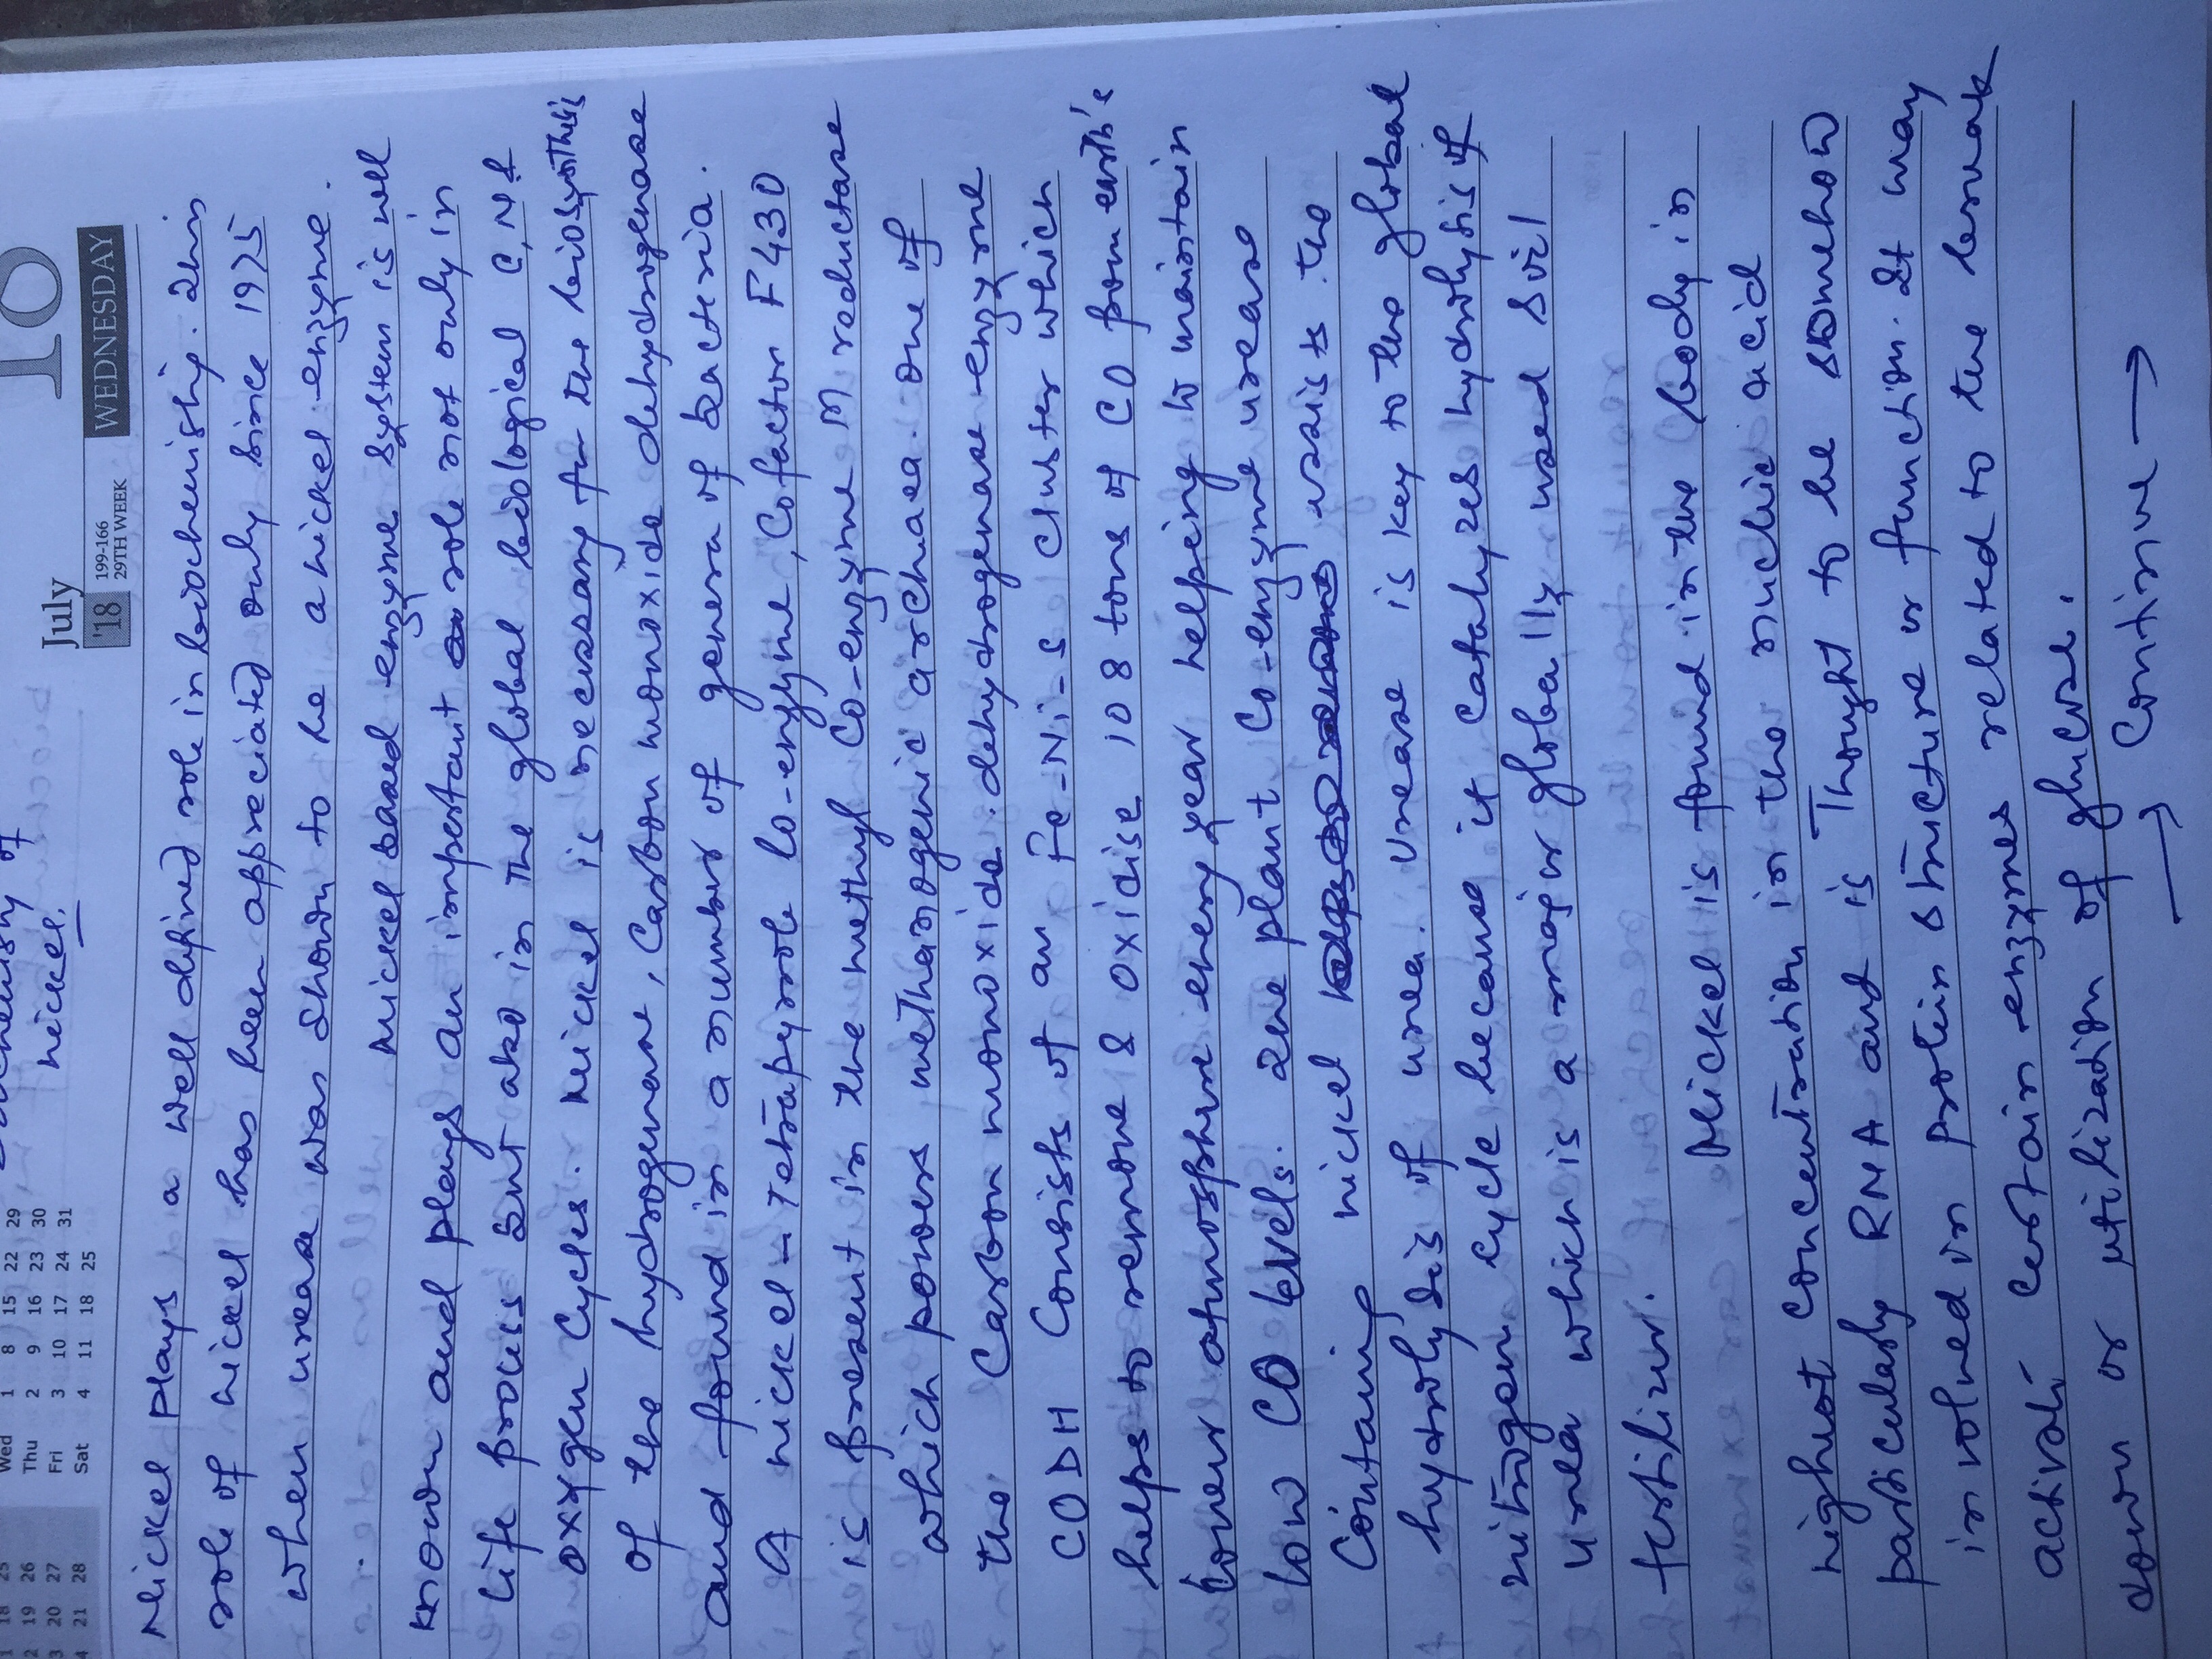 July
10
'18
199-166
29TH WEEK
WEDNESDAY
Wed 1 8 15 22 29
Thu 2 9 16 23 30
Fri 3 10 17 24 31
Sat 4 11 18 25
18 25
19 26
20 27
21 28
of
nickel.
Nickel plays a well defined role in biochemistry. This
role of nickel has been appreciated only since 1975
when urease was shown to be a nickel enzyme.
Nickel based enzyme system is well
known and plays an important role not only in
life process but also in the global biological C, N &
oxygen cycles. Nickel is necessary for the biosynthesis
of the hydrogenase, carbon monoxide dehydrogenase
and found in a number of genera of bacteria.
A nickel - tetrapyrrole co-enzyme, cofactor F430
is present in the methyl co-enzyme M reductase
which powers methanogenic archaea. one of
the carbon monoxide dehydrogenase enzyme
CODH consists of an Fe-Ni-S cluster which
helps to remove & oxidise 108 tons of CO from earth's
lower atmosphere every year helping to maintain
low CO levels. The plant co-enzyme urease
containing nickel assists the
hydrolysis of urea. Urease is key to the global
nitrogen cycle because it catalyzes hydrolysis of
urea which is a major globally used soil
fertilizer.
Nickel is found in the body in
highest concentration in the nucleic acid
particularly RNA and is Thought to be somehow
involved in protein structure or function. It may
activate certain enzymes related to the break
down or utilization of glucose.
→ Continue →